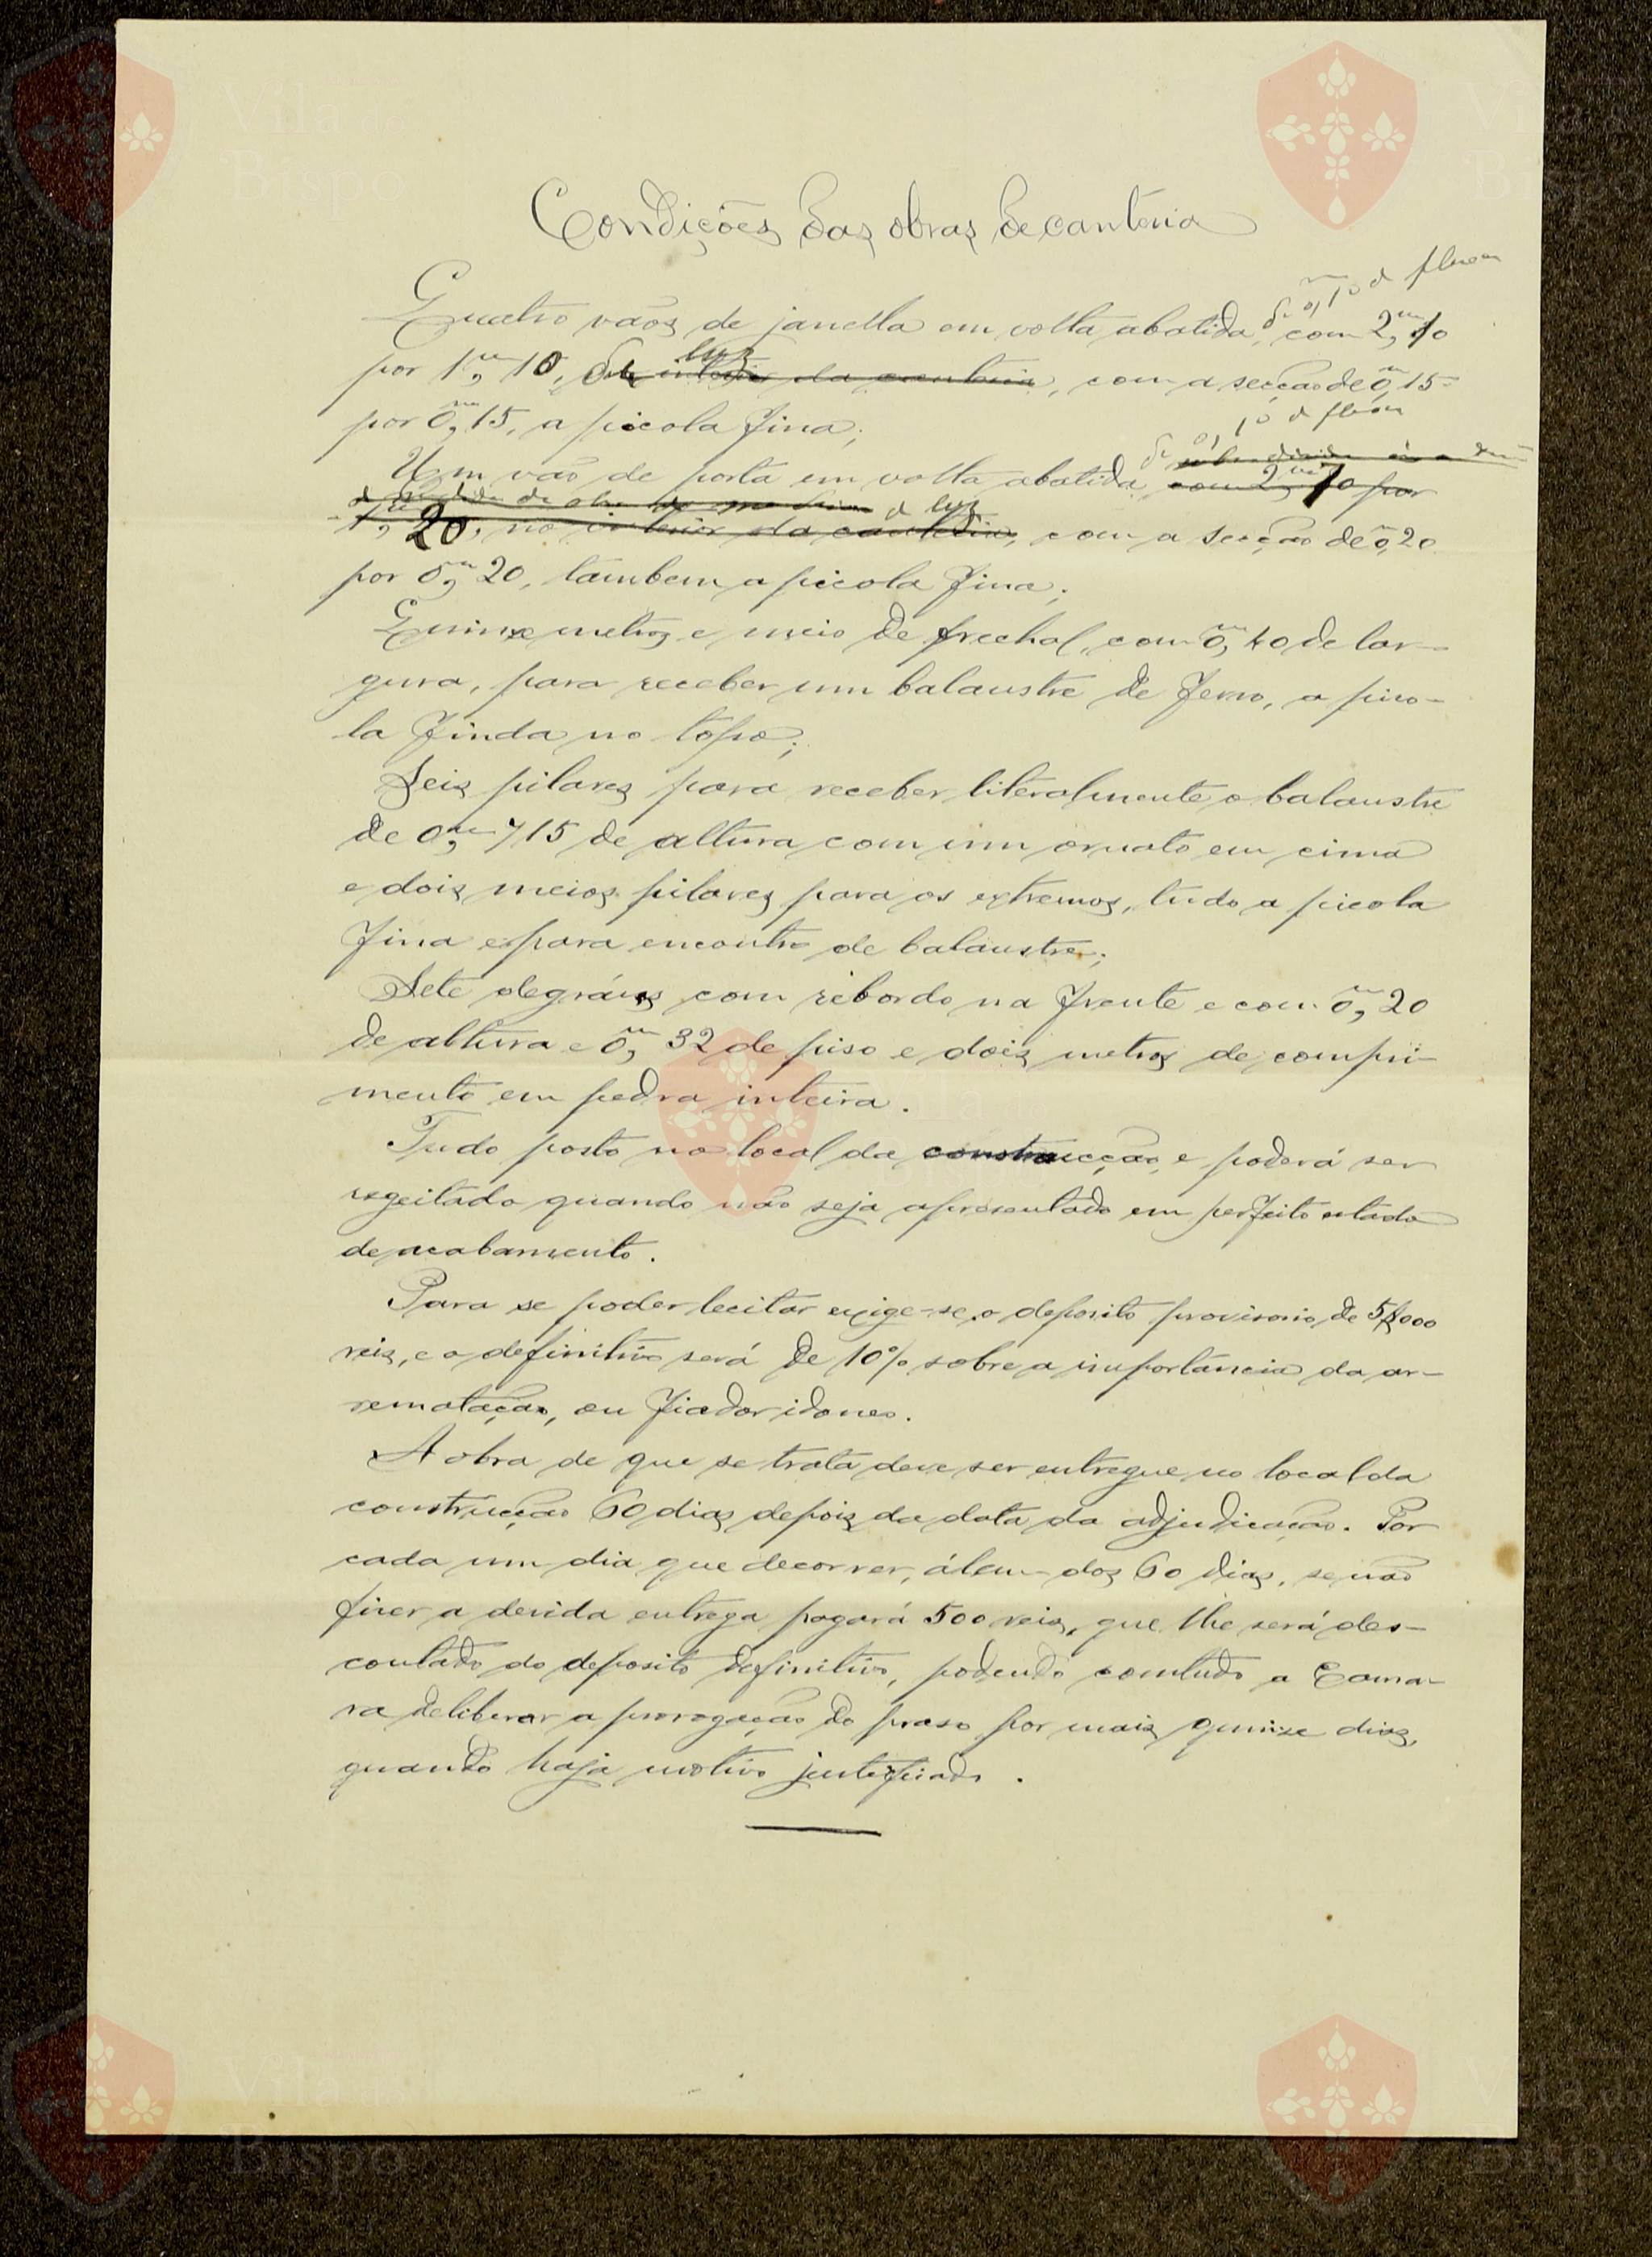 Condições das obras de cantaria
de 0,10 de flexa
Quatro vãos de janella em volta abatida, com 2,m10
luz
por 1,m10, de interior da cantaria, com a secção de 0,m15
por 0,m15, a picola fina;
de 0,10 de flexa
Um vão de porta em volta abatida com 2,m10 por
de luz
1,m20, no interior da cantaria, com a secção de 0,m20
por 0,m20, tambem a picola fina;
Quinze metros e meio de frechal, com 0,m40 de lar-
gura, para receber um balaustre de ferro, a pico-
la finda no topo;
Seis pilares para receber literalmente o balaustre
de 0,m715 de altura com um ornato em cima
e dois meios pilares para os extremos, tudo a picola
fina e para encontro de balaustre;
Sete degráus com rebordo na frente e com 0,m20
de altura e 0,m32 de piso e dois metros de compri-
mento em pedra inteira.
Tudo posto no local da construcção, e poderá ser
regeitado quando não seja apresentado em perfeito estado
de acabamento.
Para se poder lecitar exige-se o deposito provisorio de 5$000
reis, e o definitivo será de 10% sobre a importancia da ar-
rematação, ou fiador idoneo.
A obra de que se trata deve ser entregue no local da
construcção 60 dias depois da data da adjudicação. Por
cada um dia que decorrer, álem dos 60 dias, se não
fizer a devida entrega pagará 500 reis, que lhe será des-
contado do deposito definitivo, podendo comtudo a Cama-
ra deliberar a prorogação do praso por mais quinze dias,
quando haja motivo justificado.
Vila do
Bispo